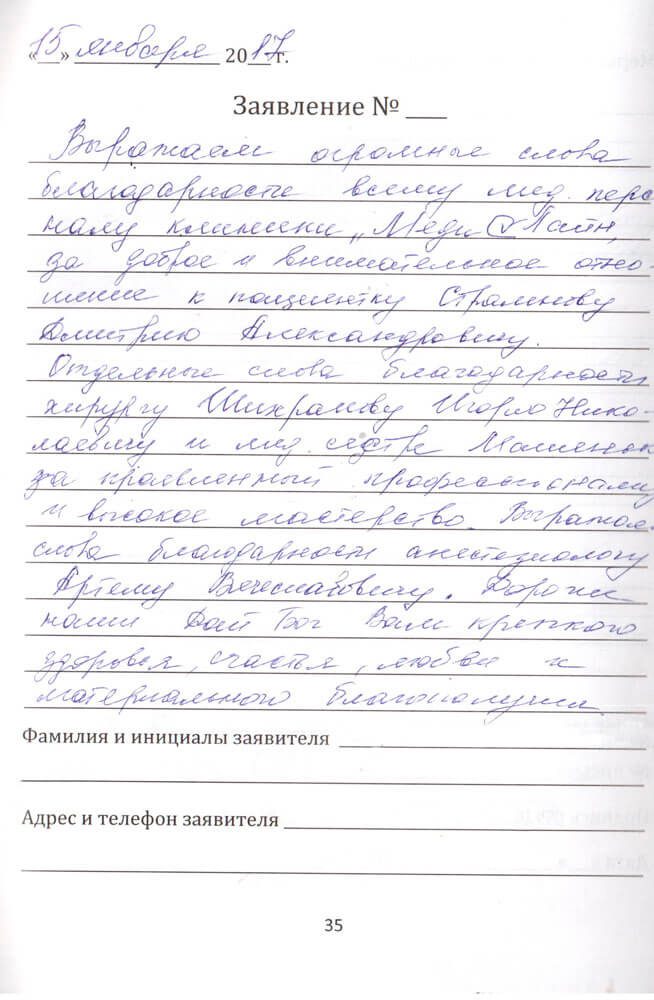 «15» января 2017 г.
Заявление № ___
Выражаем огромные слова
благодарности всему мед. персо
налу клиники „Меди Лайн„
за доброе и внимательное отно-
шение к пациентку
Дмитрию Александровичу.
Отдельные слова благодарности
хирургу Шихранову Игорю Нико-
лаевичу и мед. сестре
за проявленный профессионализ
и высокое мастерство. Выражаем
слова благодарности анестезиологу
Артему Вячеславовичу.
наши Дай Бог Вам крепкого
здоровья, счастья, любви и
материального благополучия.
Фамилия и инициалы заявителя
Адрес и телефон заявителя
35